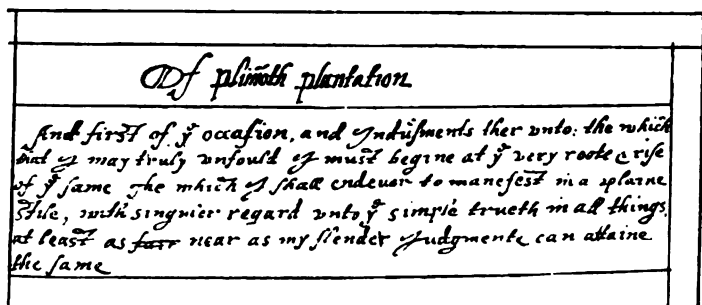 Of plim̃oth plantation
And first of yͤ occasion, and Indusments ther vnto; the which
that I may truly vnfould I must begine at yͤ very roote & rise
of yͤ same The which I shall endeuor to manefest in a plaine
stile, with singuler regard vnto yͤ simple trueth in all things,
at least as farr near as my slender Judgmente can attaine
the same